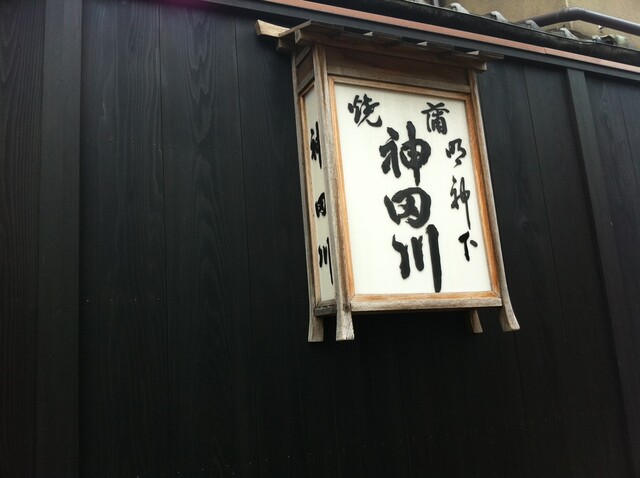 蒲焼
明神下
神田川
神田川